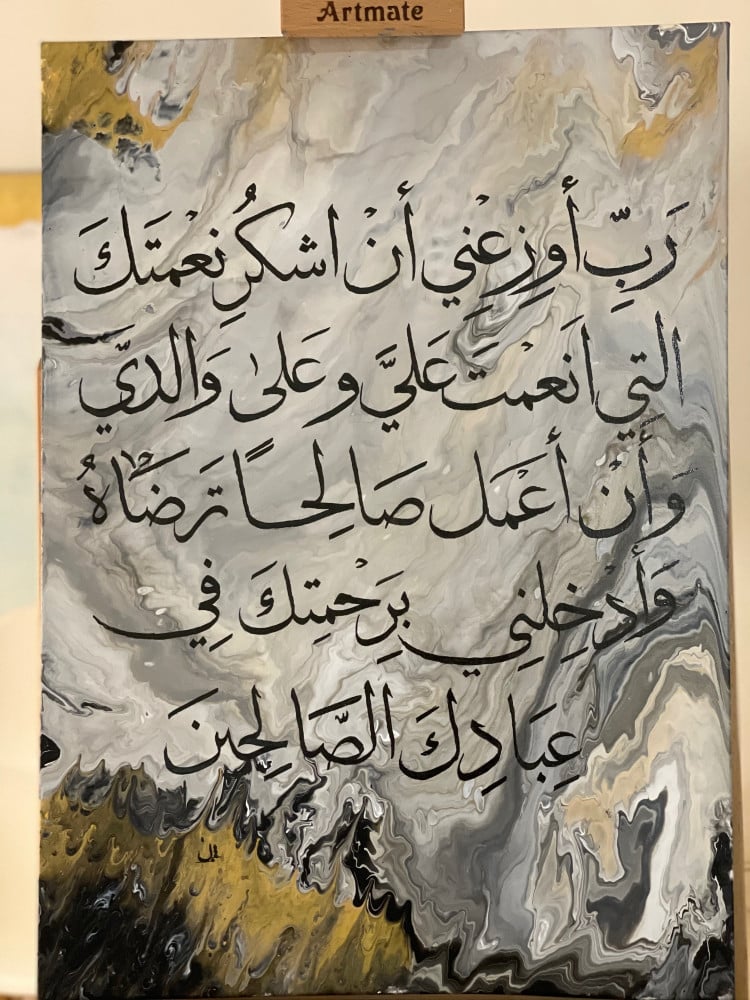 Artmate
رَبِّ أَوزِعْنِي أنْ اشكُرِ نعْمَتَكَ
التي انَعمْتَ عَليَّ وعَلىٰ وَالديّ
وأنْ أعَمَل صَالِحاً تَرضَاهُ
وَأدْخِلنِي بِرَحْمتِكَ فِي
عِبَادِكَ الصَّالِحِينَ